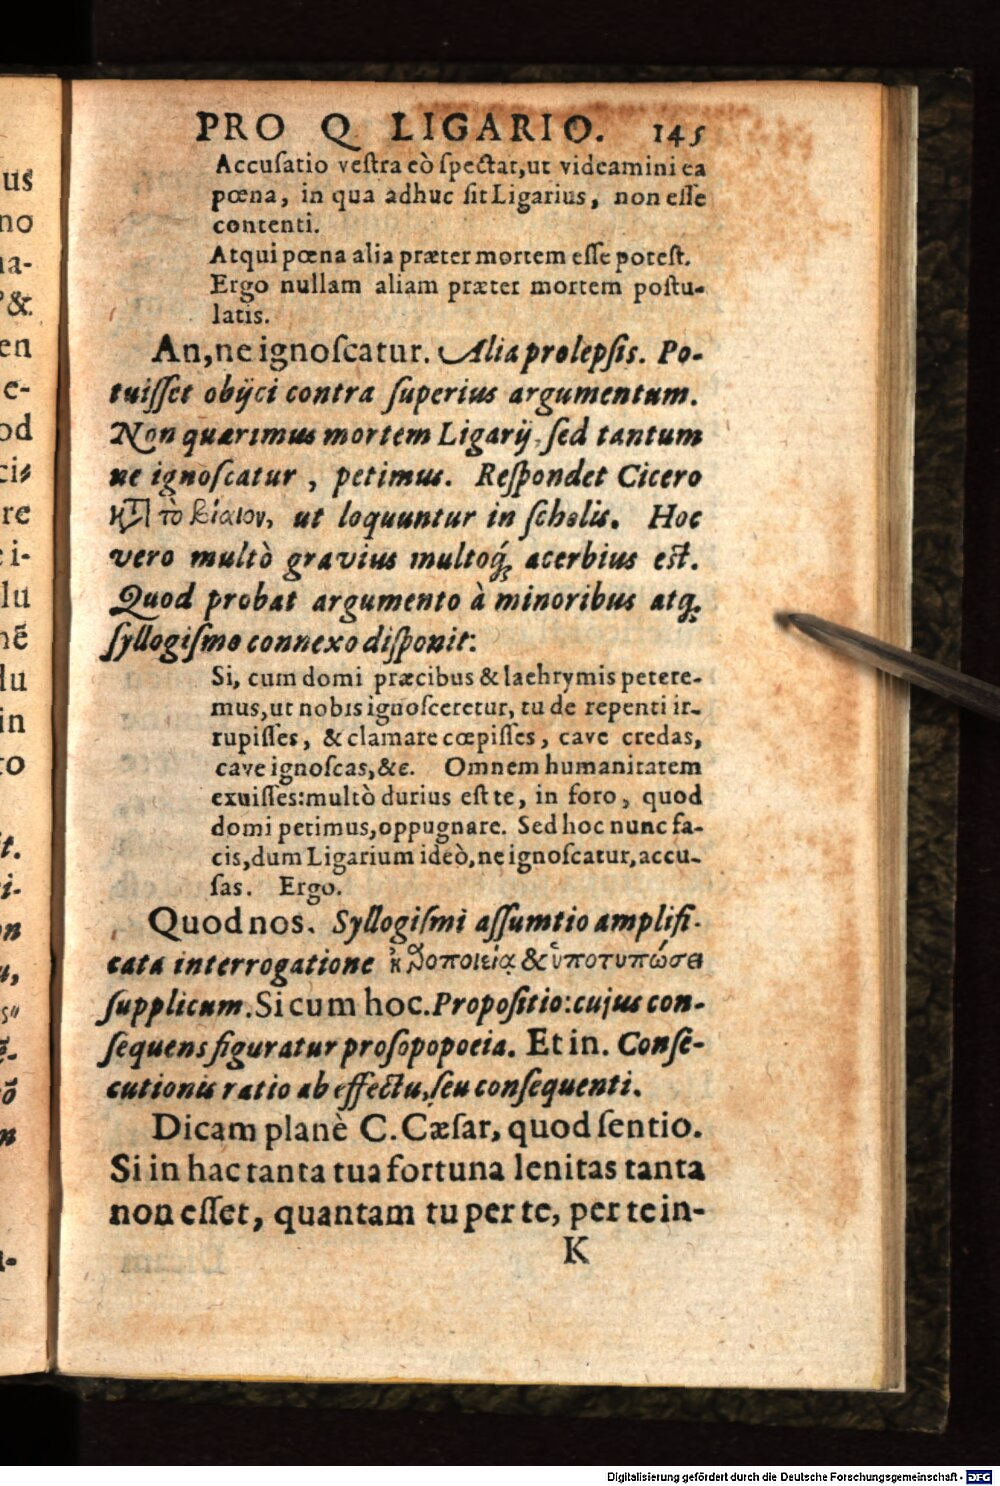 us
no
na-
&
en
e-
od
cis
re
i-
lu
nē
du
in
to
it.
i-
on
u,
n
PRO Q LIGARIO. 145
Accuſatio veſtra eò ſpectat, ut videamini ea
pœna, in qua adhuc ſit Ligarius, non eſſe
contenti.
Atqui pœna alia præter mortem eſſe poteſt.
Ergo nullam aliam præter mortem poſtu-
latis.
An, ne ignoſcatur. Alia prolepſis. Po-
tuiſſet obijci contra ſuperius argumentum.
Non quærimus mortem Ligarij, ſed tantum
ne ignoſcatur, petimus. Reſpondet Cicero
κτ τὸ βίαιον, ut loquuntur in ſcholis. Hoc
vero multò gravius multoq́; acerbius eſt.
Quod probat argumento à minoribus atq;
ſyllogiſmo connexo diſponit:
Si, cum domi præcibus & lachrymis petere-
mus, ut nobis ignoſceretur, tu de repenti ir-
rupiſſes, & clamare cœpiſſes, cave credas,
cave ignoſcas, &c. Omnem humanitatem
exuiſſes: multò durius eſt te, in foro, quod
domi petimus, oppugnare. Sed hoc nunc fa-
cis, dum Ligarium ideò, ne ignoſcatur, accu-
ſas. Ergo.
Quod nos. Syllogiſmi aſſumtio amplifi-
cata interrogatione & ὑποτυπώσει
ſupplicum. Si cum hoc. Propoſitio: cujus con-
ſequens figuratur proſopopoeia. Et in. Conſe-
cutionis ratio ab effectu, ſeu conſequenti.
Dicam planè C. Cæſar, quod ſentio.
Si in hac tanta tua fortuna lenitas tanta
non eſſet, quantam tu per te, per te in-
K
Digitalisierung gefördert durch die Deutsche Forschungsgemeinschaft - DFG